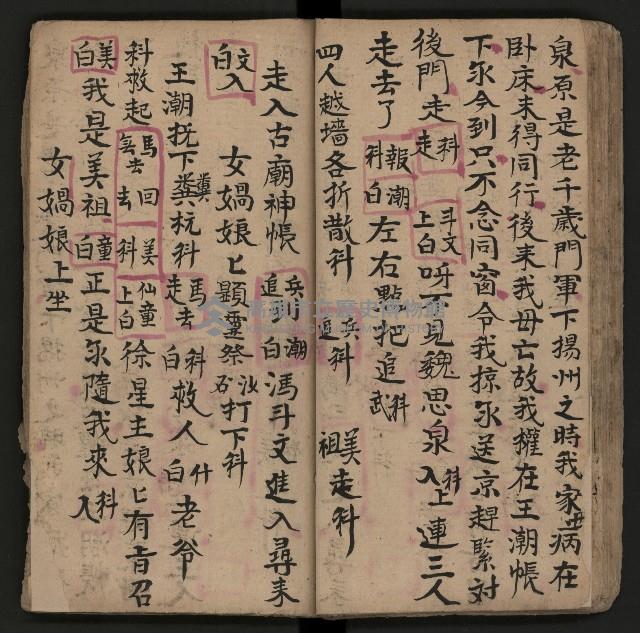 泉原是老千歲門軍下揚州之時我家母病在
卧床未得同行後来我母亡故我擢在王潮帳
下永今到只不念同窗令我掠永送京趕緊对
後門走科走斗文上白呀不見魏思泉科入上連三人
走去了報科潮白左右點兆追科武
四人越墻各折散科兵追科 美祖走科
走入古廟神帳兵追步潮白馮斗文進入尋来
文入白女媧娘匕顯靈祭沙石打下科
王潮扰下糞杭科馬走去科白救人什白老爷
科救起馬去回去美科仙童上白徐星主娘匕有旨召
美白我是美祖童白正是永隨我來科入
女媧娘上坐
高雄市立歷史博物館